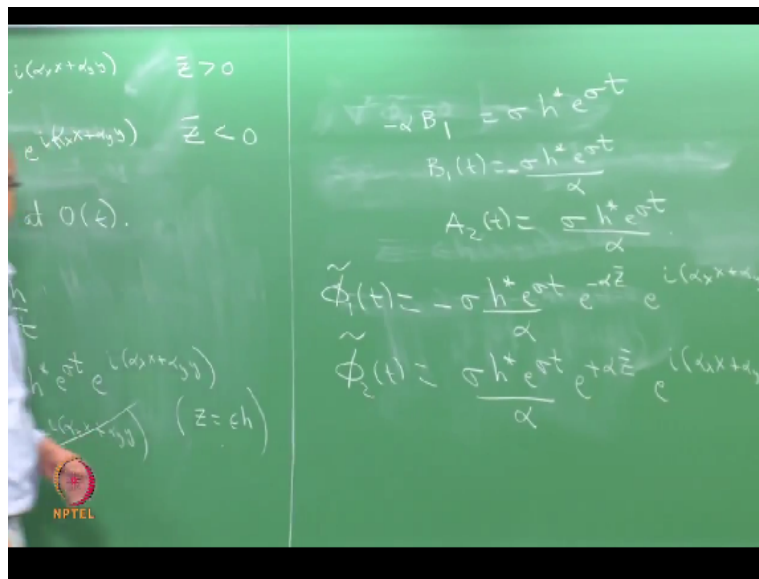 i(αₓx+α_y y) z̄ > 0
e^{i(αₓx+α_y y)} z̄ < 0
at O(ε).
h
t
h* e^{σt} e^{i(αₓx+α_y y)}
i(αₓx+α_y y) (z = εh)
-α B₁ = σ h* e^{σt}
B₁(t) = -σ h* e^{σt} / α
A₂(t) = σ h* e^{σt} / α
φ̃₁(t) = - σ h* e^{σt} / α e^{-αz̄} e^{i(αₓx+α_y
φ̃₂(t) = σ h* e^{σt} / α e^{+αz̄} e^{i(αₓx+α_y
NPTEL